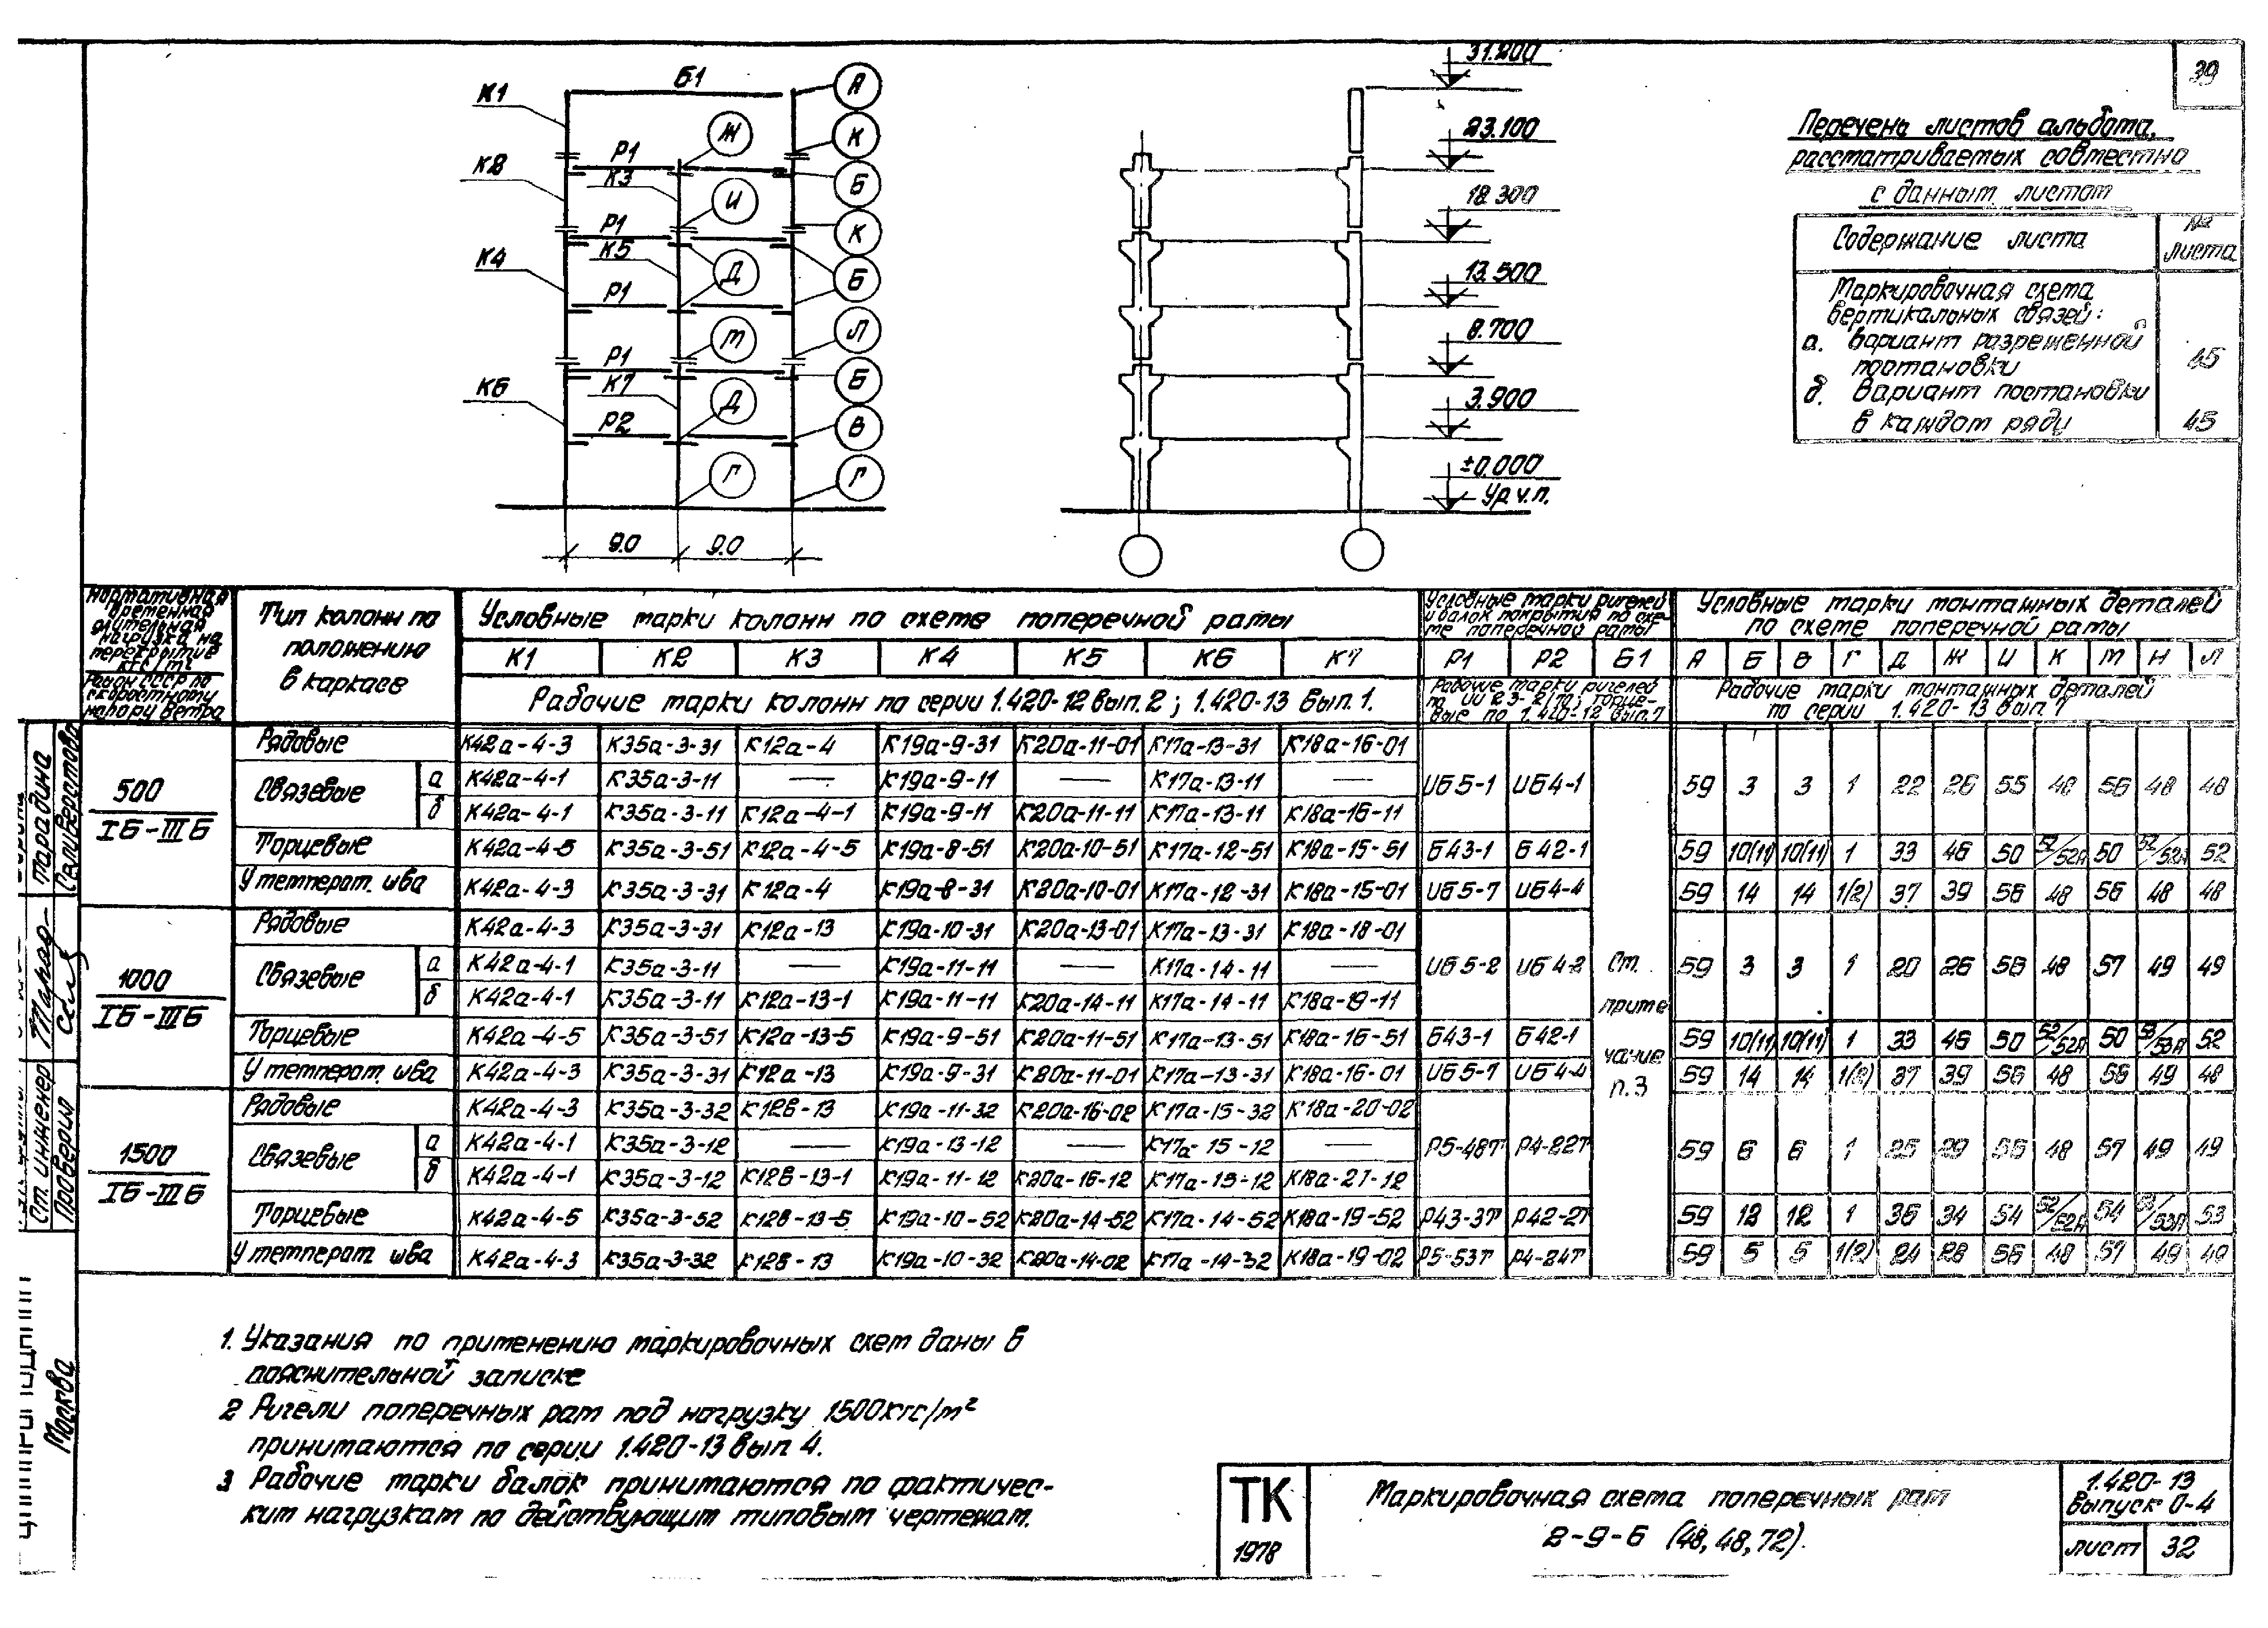 39
К1
Б1
А
К
Ж
К8
Р1
К3
Б
И
К
Р1
К4
К5
Д
Б
Р1
М
Л
Р1
К6
К7
Д
Б
Р2
В
Г
Г
9.0 9.0
31.200
23.100
18.300
13.500
8.700
3.900
±0.000
Ур.ч.п.
Перечень листов альбома,
рассматриваемых совместно
с данным листом
Содержание листа
№ листа
Маркировочная схема
вертикальных связей:
а. вариант разреженной
постановки 45
б. вариант постановки
в каждом ряду 45
Нормативная временная длительная нагрузка на перекрытие кгс/м²
Район СССР по скоростному напору ветра
Тип колонн по положению в каркасе
Условные марки колонн по схеме поперечной рамы
Условные марки ригелей и балок покрытия по схеме поперечной рамы
Условные марки монтажных деталей по схеме поперечной рамы
К1 К2 К3 К4 К5 К6 К7 Р1 Р2 Б1 А Б В Г Д Ж И К М Н Л
Рабочие марки колонн по серии 1.420-12 вып.2; 1.420-13 вып.1.
Рабочие марки ригелей по ИИ23-2/70; торцевые по 1.420-12 вып.7
Рабочие марки монтажных деталей по серии 1.420-13 вып.7
500
IБ-IIIБ
Рядовые К42а-4-3 К35а-3-31 К12а-4 К19а-9-31 К20а-11-01 К17а-13-31 К18а-16-01
Связевые а К42а-4-1 К35а-3-11 — К19а-9-11 — К17а-13-11 — ИБ5-1 ИБ4-1 59 3 3 1 22 26 55 48 56 48 48
б К42а-4-1 К35а-3-11 К12а-4-1 К19а-9-11 К20а-11-11 К17а-13-11 К18а-16-11
Торцевые К42а-4-5 К35а-3-51 К12а-4-5 К19а-8-51 К20а-10-51 К17а-12-51 К18а-15-51 Б43-1 Б42-1 59 10(11) 10(11) 1 33 46 50 52/52А 50 52/52А 52
У температ. шва К42а-4-3 К35а-3-31 К12а-4 К19а-8-31 К20а-10-01 К17а-12-31 К18а-15-01 ИБ5-7 ИБ4-4 59 14 14 1(2) 37 39 56 48 56 48 48
1000
IБ-IIIБ
Рядовые К42а-4-3 К35а-3-31 К12а-13 К19а-10-31 К20а-13-01 К17а-13-31 К18а-18-01
Связевые а К42а-4-1 К35а-3-11 — К19а-11-11 — К17а-14-11 — ИБ5-2 ИБ4-2 См. 59 3 3 1 20 26 56 48 57 49 49
б К42а-4-1 К35а-3-11 К12а-13-1 К19а-11-11 К20а-14-11 К17а-14-11 К18а-19-11 приме
Торцевые К42а-4-5 К35а-3-51 К12а-13-5 К19а-9-51 К20а-11-51 К17а-13-51 К18а-16-51 Б43-1 Б42-1 чание 59 10(11) 10(11) 1 33 46 50 52/52А 50 53/53А 52
У температ. шва К42а-4-3 К35а-3-31 К12а-13 К19а-9-31 К20а-11-01 К17а-13-31 К18а-16-01 ИБ5-7 ИБ4-4 п.3 59 14 14 1(2) 37 39 56 48 56 49 48
1500
IБ-IIIБ
Рядовые К42а-4-3 К35а-3-32 К12в-13 К19а-11-32 К20а-16-02 К17а-15-32 К18а-20-02
Связевые а К42а-4-1 К35а-3-12 — К19а-13-12 — К17а-15-12 — Р5-48Т Р4-22Т 59 6 6 1 25 29 55 48 57 49 49
б К42а-4-1 К35а-3-12 К12в-13-1 К19а-11-12 К20а-16-12 К17а-15-12 К18а-21-12
Торцевые К42а-4-5 К35а-3-52 К12в-13-5 К19а-10-52 К20а-14-52 К17а-14-52 К18а-19-52 Р43-3Т Р42-2Т 59 12 12 1 36 34 54 52/52А 54 53/53А 53
У температ. шва К42а-4-3 К35а-3-32 К12в-13 К19а-10-32 К20а-14-02 К17а-14-32 К18а-19-02 Р5-53Т Р4-24Т 59 5 5 1(2) 24 28 56 48 57 49 49
1. Указания по применению маркировочных схем даны в
пояснительной записке
2 Ригели поперечных рам под нагрузку 1500кгс/м²
принимаются по серии 1.420-13 вып 4.
3 Рабочие марки балок принимаются по фактичес-
ким нагрузкам по действующим типовым чертежам.
ТК
1978
Маркировочная схема поперечных рам
2-9-6 (48,48,72).
1.420-13
Выпуск 0-4
лист 32
Ст. инженер
Проверил
Марадина
Селиверстова
Москва